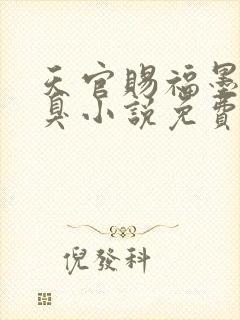 天官賜福墨
臭小說免費
倪發科